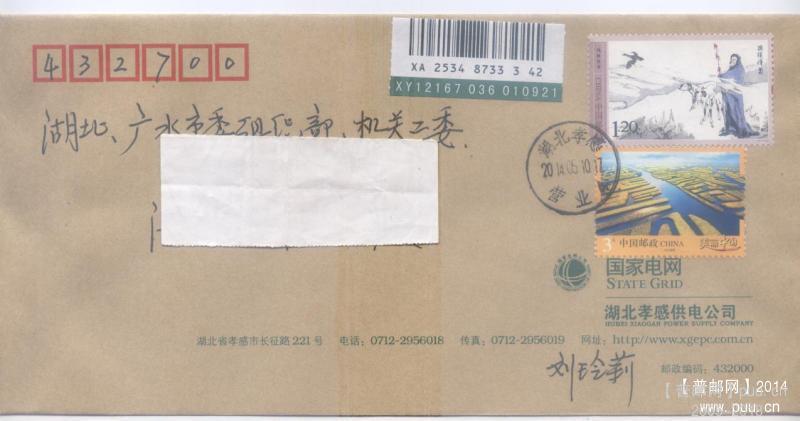 432700
XA 2534 8733 3 42
XY12167 036 010921
1.20
湖北、广水市委组织部、机关工委
湖北孝感
2014.05.10.17
营业
3元
中国邮政 CHINA
美丽中国
国家电网
STATE GRID
湖北孝感供电公司
HUBEI XIAOGAN POWER SUPPLY COMPANY
湖北省孝感市长征路221号 电话：0712-2956018 传真：0712-2956019 网址：http://www.xgepc.com.cn
邮政编码：432000
刘玲莉
【普邮网】2014
www.puu.cn